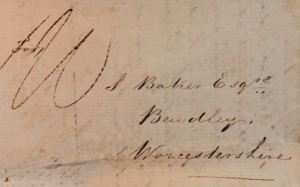 S. Baker Esqre
Bewdley.
Worcestershire